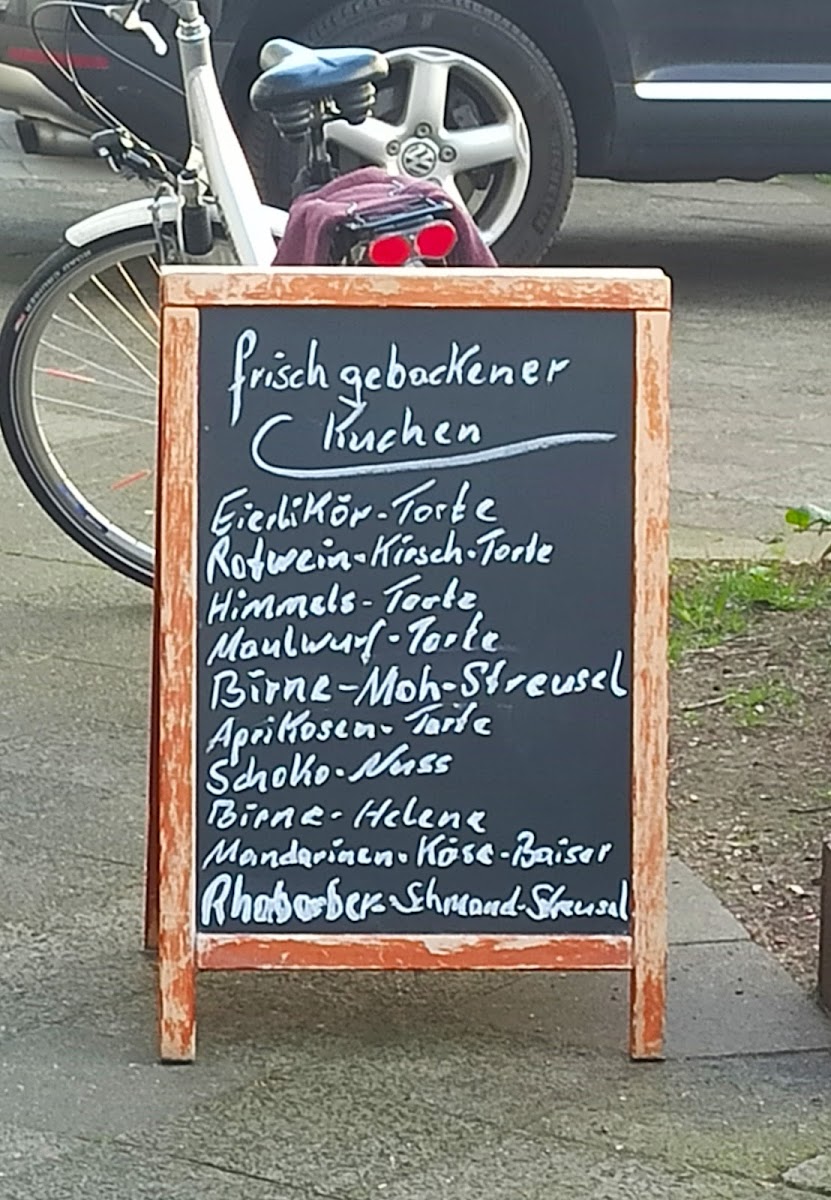 frisch gebackener
Kuchen
Eierlikör-Torte
Rotwein-Kirsch-Torte
Himmels-Torte
Maulwurf-Torte
Birne-Moh-Streusel
Aprikosen-Torte
Schoko-Nuss
Birne-Helene
Mandarinen-Käse-Baiser
Rhabarber-Schmand-Streusel